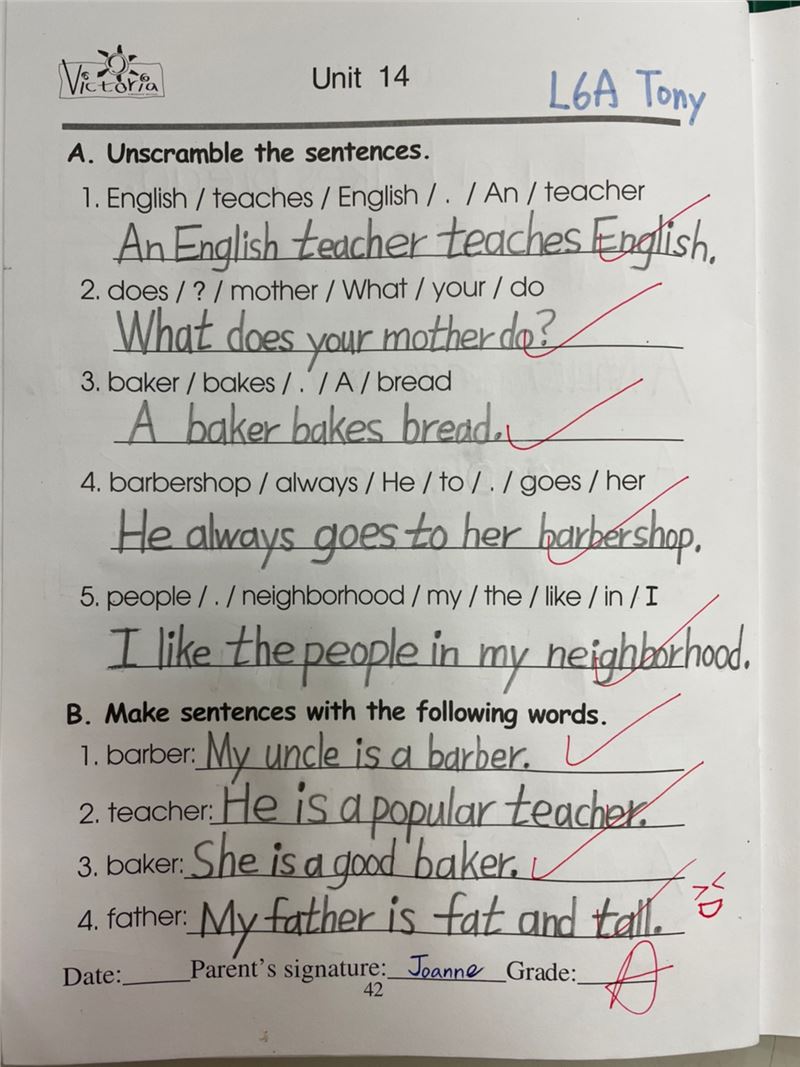 Victoria
Unit 14
L6A Tony
A. Unscramble the sentences.
1. English / teaches / English / . / An / teacher
An English teacher teaches English.
2. does / ? / mother / What / your / do
What does your mother do?
3. baker / bakes / . / A / bread
A baker bakes bread.
4. barbershop / always / He / to / . / goes / her
He always goes to her barbershop.
5. people / . / neighborhood / my / the / like / in / I
I like the people in my neighborhood.
B. Make sentences with the following words.
1. barber: My uncle is a barber.
2. teacher: He is a popular teacher.
3. baker: She is a good baker.
4. father: My father is fat and tall.
Date:_____ Parent's signature: Joanne Grade: A
42